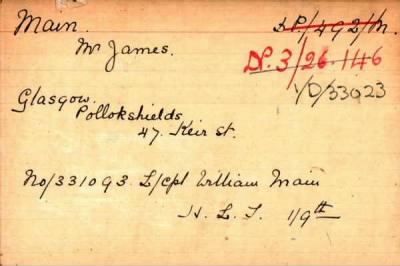 Main.
Mr James.
DP/1492/M.
DP. 3/26.146
VD/33023
Glasgow.
Pollokshields
47. Keir St.
No/331093. L/Cpl William Main
H. L. I. 1/9th